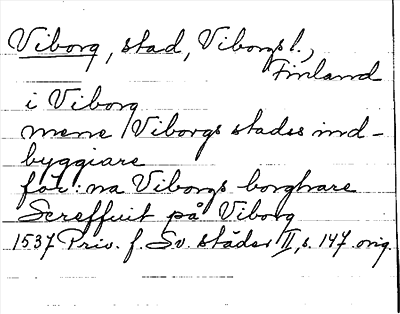 Viborg, stad, Viborgs l.,
Finland
i Viborg
mene Viborgs stadss ind-
byggiare
för:na Viborgs borghare
Screffuit på Viborg
1537 Priv. f. Sv. städer II, s. 147 orig.